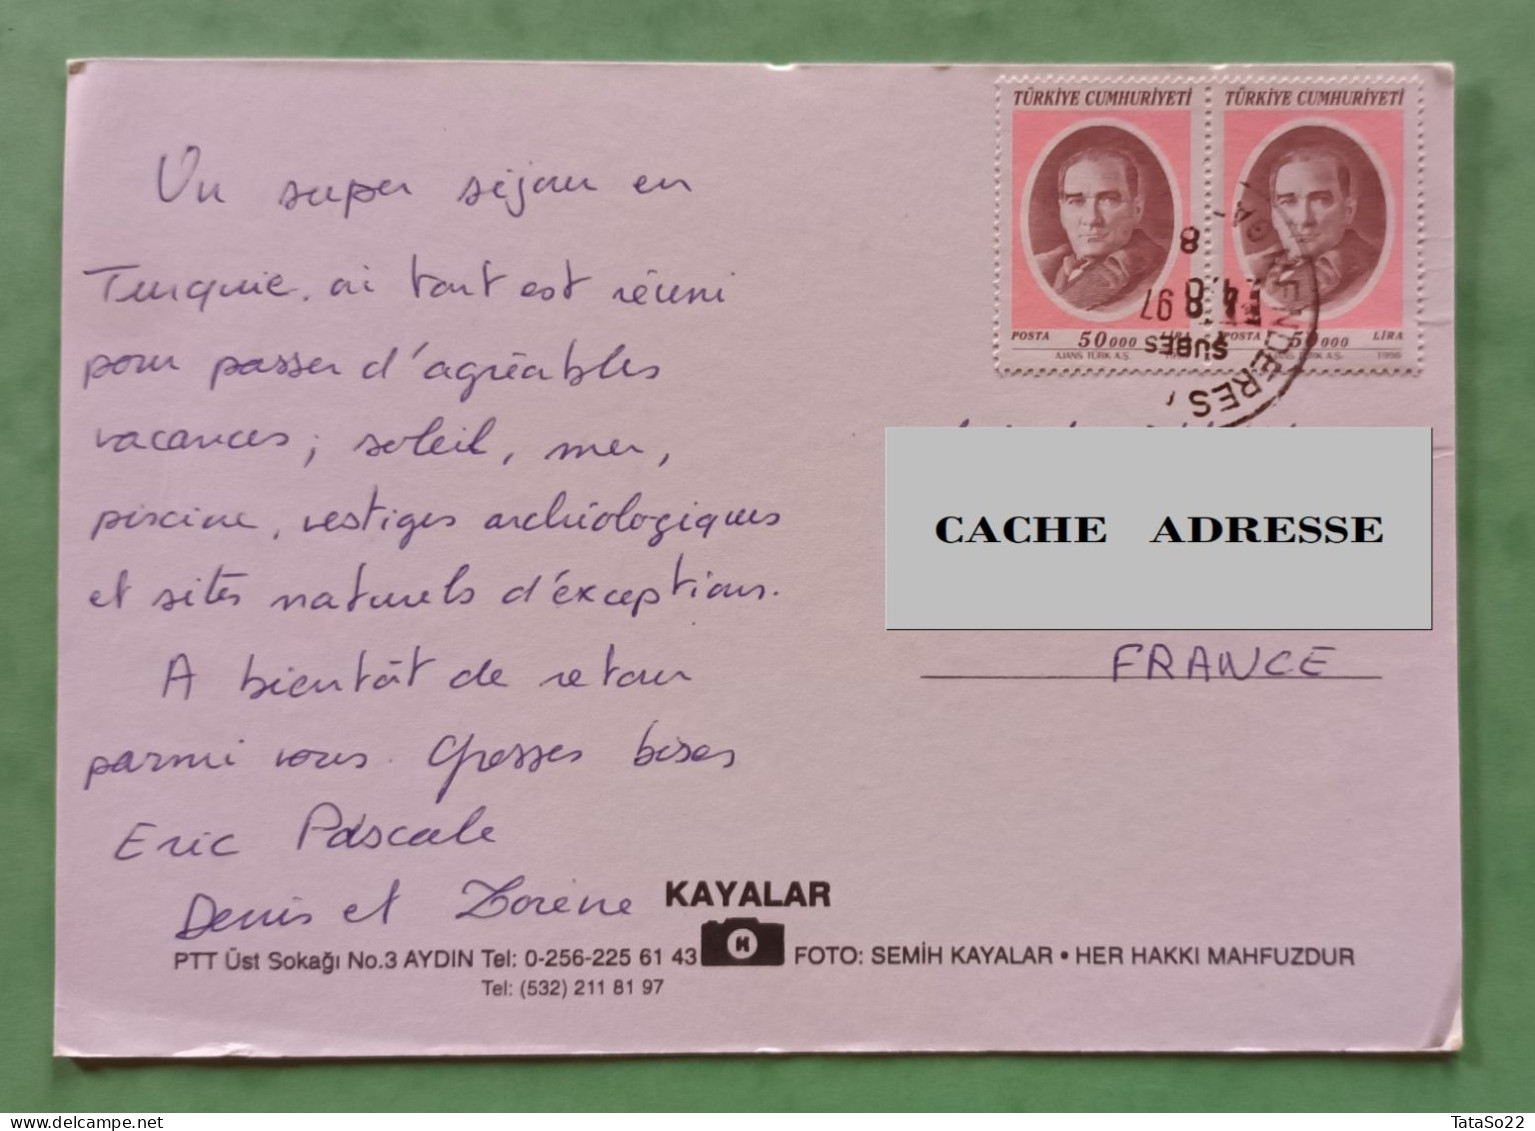 Un super séjour en
Turquie, où tout est réuni
pour passer d'agréables
vacances ; soleil, mer,
piscine, vestiges archéologiques
et sites naturels d'éxceptions.
A bientôt de retour
parmi vous. Grosses bises
Eric Pascale
Denis et Zorene
TÜRKİYE CUMHURİYETİ
POSTA 50000 LİRA
AJANS TÜRK A.Ş.
TÜRKİYE CUMHURİYETİ
POSTA 50000 LİRA
AJANS TÜRK A.Ş. 1996
97
8
ŞUBES
CACHE ADRESSE
FRANCE
KAYALAR
PTT Üst Sokağı No.3 AYDIN Tel: 0-256-225 61 43 K FOTO: SEMİH KAYALAR • HER HAKKI MAHFUZDUR
Tel: (532) 211 81 97
TataSo22